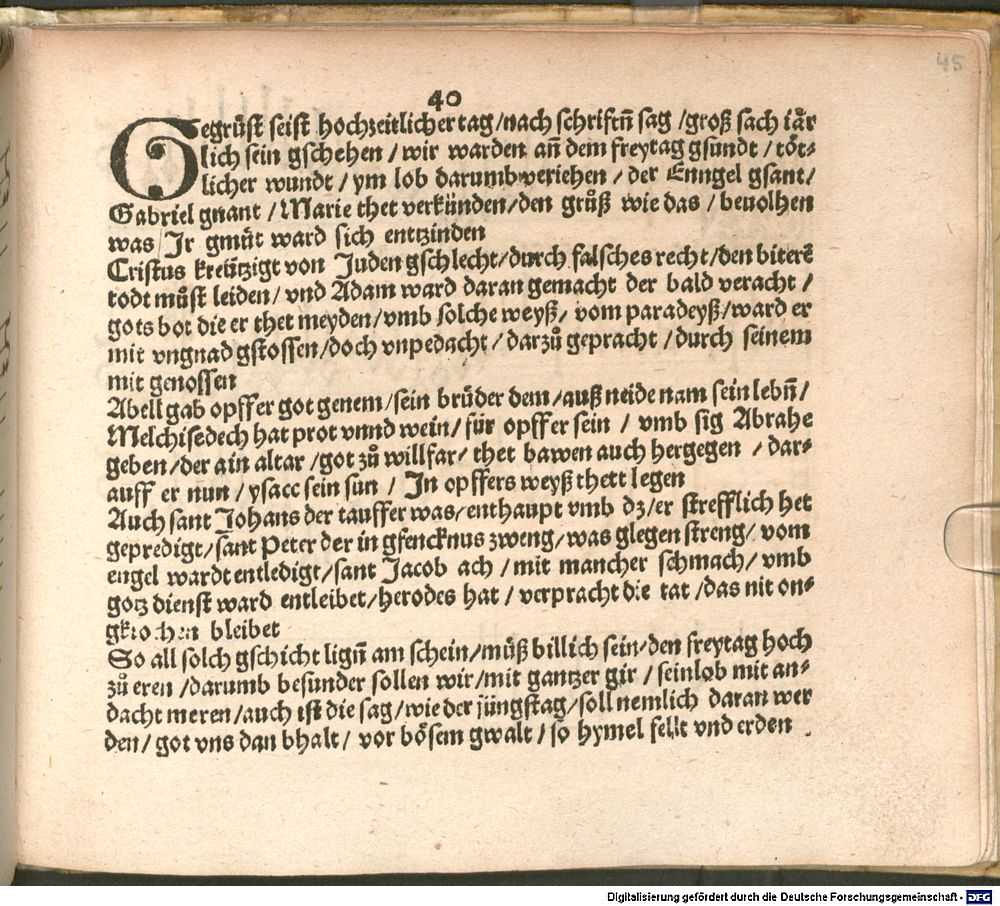 45
40
Gegrüst seist hochzeitlicher tag/nach schriftn̄ sag /groß sach iår
lich sein gschehen / wir warden an̄ dem freytag gsundt / tött⸗
licher wundt / ym lob darumb veriehen / der Enngel gsant/
Gabriel gnant / Marie thet verkünden/den grůß wie das / beuolhen
was/Ir gmüt ward sich enttzinden
Cristus kreützigt von Juden gschlecht/durch falsches recht/den biterē
todt můst leiden/ vnd Adam ward daran gemacht der bald veracht /
gots bot die er thet meyden/vmb solche weyß/ vom paradeyß/ward er
mit vngnad gstossen/doch vnpedacht/ darzů gepracht /durch seinem
mit genossen
Abell gab opffer got genem/sein brůder dem/auß neide nam sein lebn̄/
Melchisedech hat prot vnnd wein/ für opffer sein / vmb sig Abrahe
geben/der ain altar /got zů willfar/ thet bawen auch hergegen / dar⸗
auff er nun / ysacc sein sun / In opffers weyß thett legen
Auch sant Johans der tauffer was/enthaupt vmb dz/er strefflich het
gepredigt/sant Peter der in gfencknus zweng/was glegen streng/ vom
engel wardt entledigt/sant Jacob ach /mit mancher schmach/ vmb
gotz dienst ward entleibet/herodes hat / verpracht die tat /das nit on⸗
bleibet
So all solch gschicht lign̄ am schein/můß billich sein/den freytag hoch
zů eren /darumb besunder sollen wir/mit gantzer gir / sein lob mit an⸗
dacht meren/auch ist die sag/wie der jüngstag/soll nemlich daran wer
den/ got vns dan bhalt/ vor bösem gwalt / so hymel fellt vnd erden .
Digitalisierung gefördert durch die Deutsche Forschungsgemeinschaft - DFG